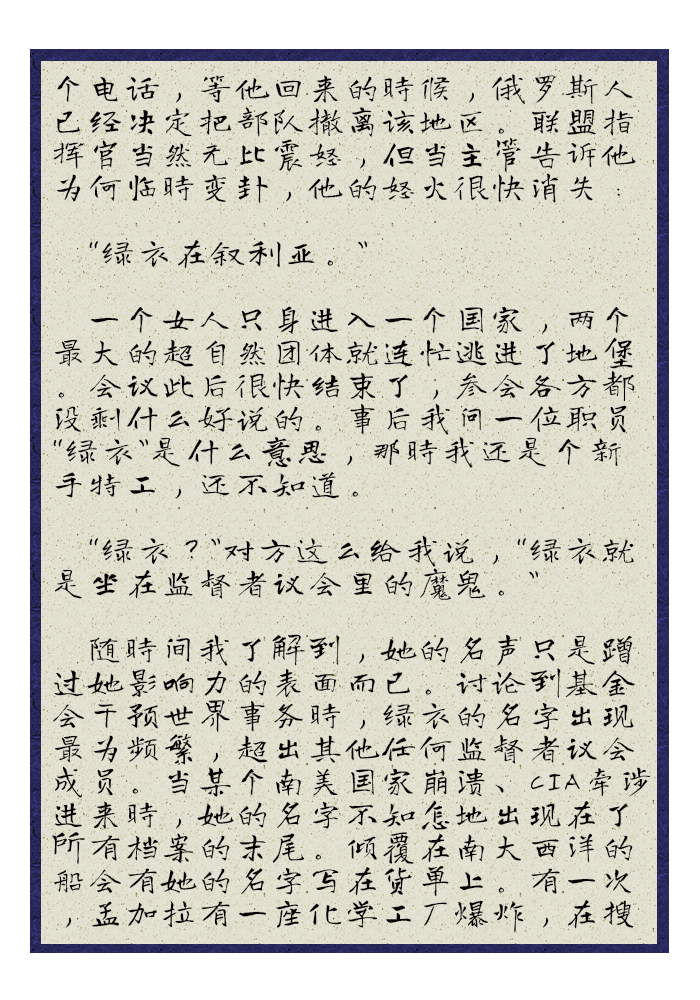 个电话，等他回来的時候，俄罗斯人
已经决定把部队撤离该地区。联盟指
挥官当然无比震怒，但当主管告诉他
为何临時变卦，他的怒火很快消失：
“绿衣在叙利亚。“
一个女人只身进入一个国家，两个
最大的超自然团体就连忙逃进了地堡
。会议此后很快结束了，参会各方都
没剩什么好说的。事后我问一位职员
“绿衣“是什么意思，那時我还是个新
手特工，还不知道。
“绿衣？“对方这么给我说，“绿衣就
是坐在监督者议会里的魔鬼。“
随時间我了解到，她的名声只是蹭
过她影响力的表面而已。讨论到基金
会干预世界事务時，绿衣的名字出现
最为频繁，超出其他任何监督者议会
成员。当某个南美国家崩溃、CIA牵涉
进来時，她的名字不知怎地出现在了
所有档案的末尾。倾覆在南大西洋的
船会有她的名字写在货单上。有一次
，孟加拉有一座化学工厂爆炸，在搜